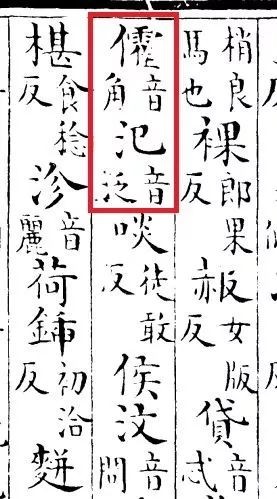 梢良馬也裸郎果反赧女版反貸音忒
傕音角汜音泛啖徒敢反侯汶音問
椹食稔反沴音麗荷鍤初洽反